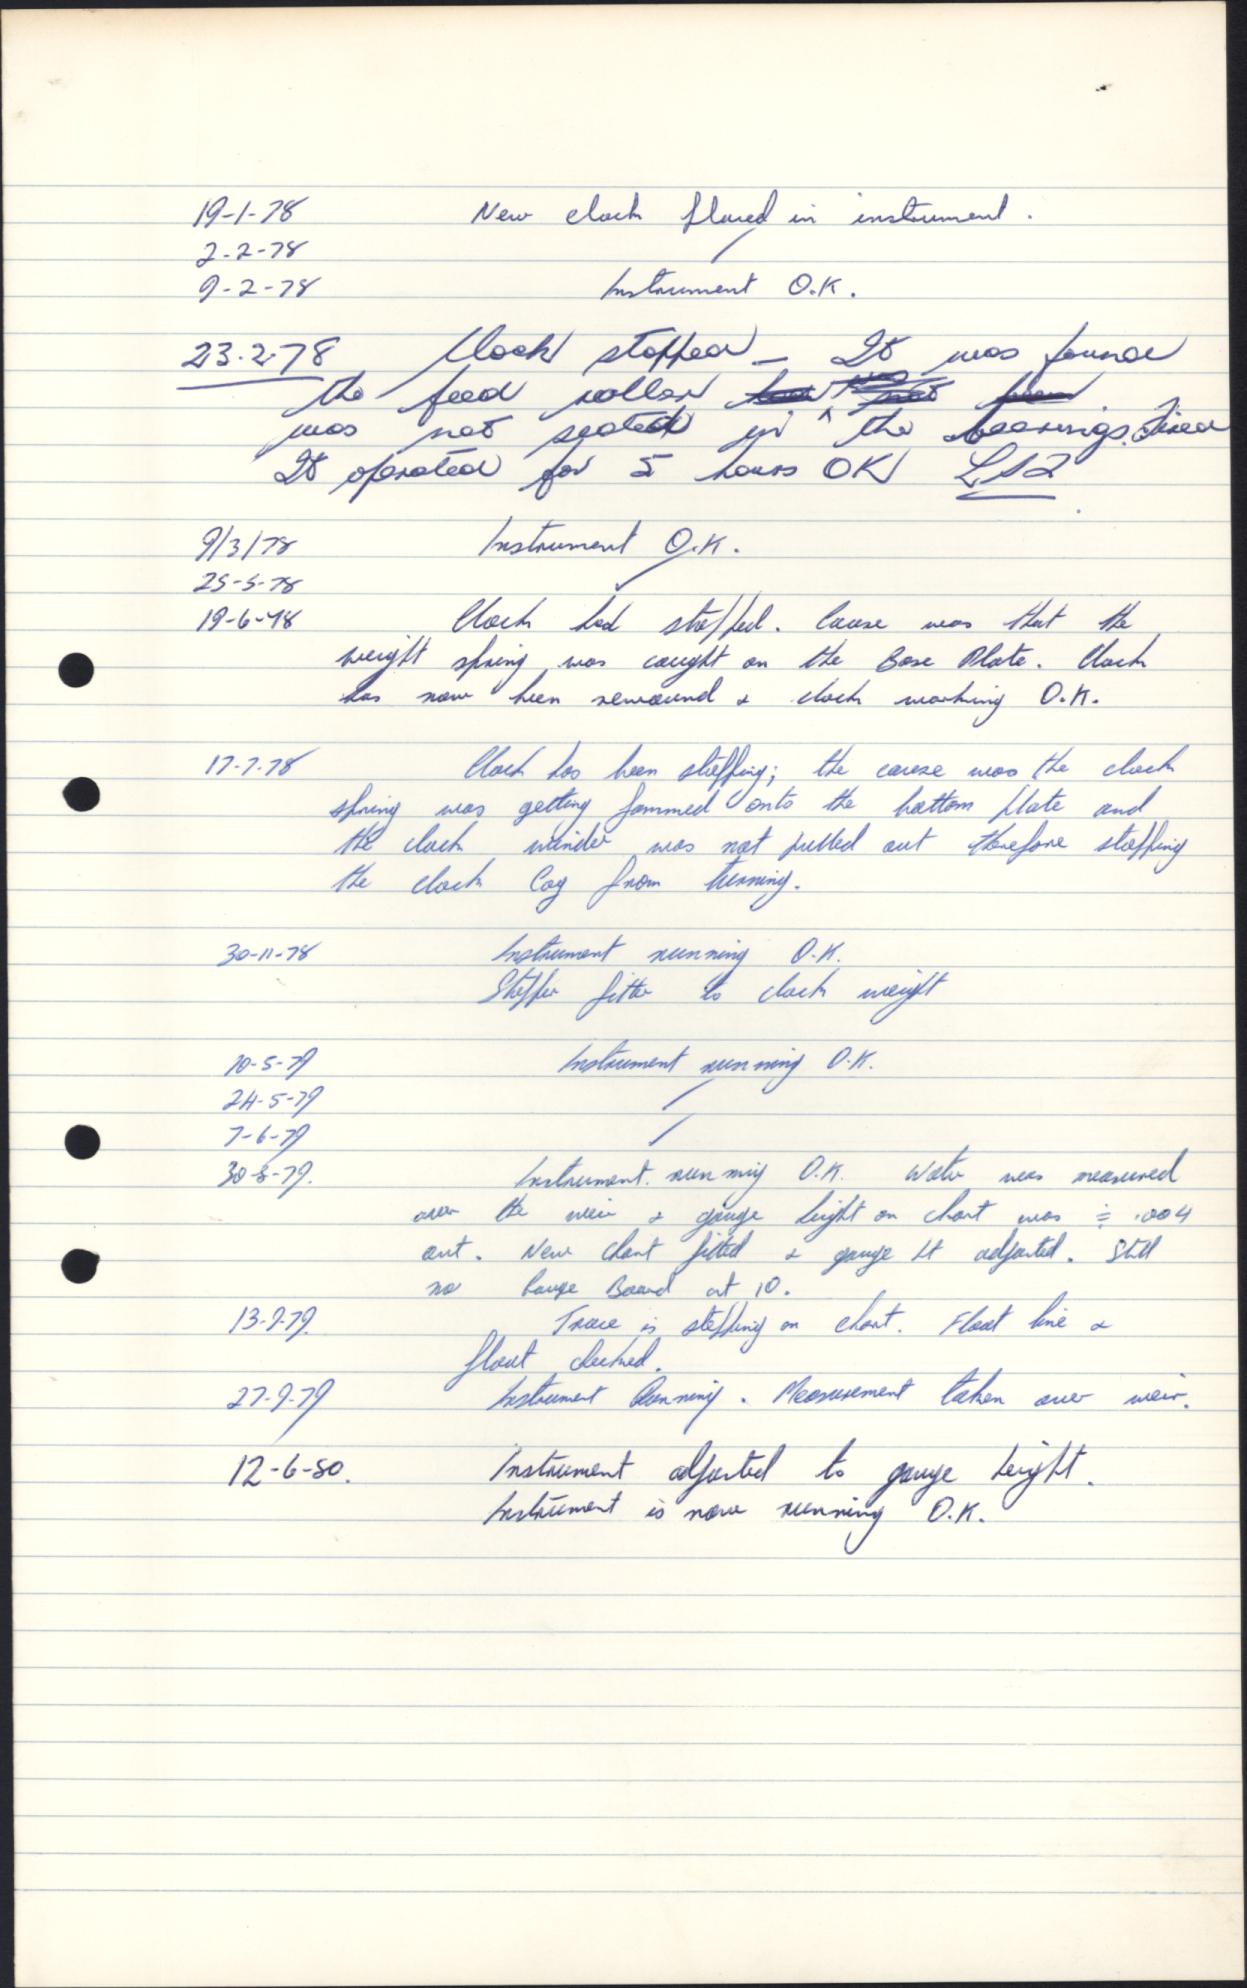 19-1-78 New clock placed in instrument.
2-2-78 /
9-2-78 Instrument O.K.
23.2.78 Clock stopped – It was found
the feed roller was
was not seated in the bearings. Fixed
It operated for 5 hours OK
9/3/78 Instrument O.K.
25-5-78 ✓
19-6-78 Clock had stopped. Cause was that the
weight spring was caught on the Base Plate. Clock
has now been rewound & clock working O.K.
17-7-78 Clock has been stopping; the cause was the clock
spring was getting jammed onto the bottom plate and
the clock winder was not pulled out therefore stopping
the clock Cog from turning.
30-11-78 Instrument running O.K.
Stopper fitte to clock weight
10-5-79 Instrument running O.K.
24-5-79 /
7-6-79 /
30-8-79. Instrument. running O.K. Water was measured
over the weir & gauge height on chart was ≑ .004
out. New Chart fitted & gauge Ht adjusted. Still
no Gauge Board at 10.
13-9-79. Trace is stepping on chart. Float line &
float checked.
27-9-79 Instrument Running. Measurement taken over weir.
12-6-80. Instrument adjusted to gauge height.
Instrument is now running O.K.